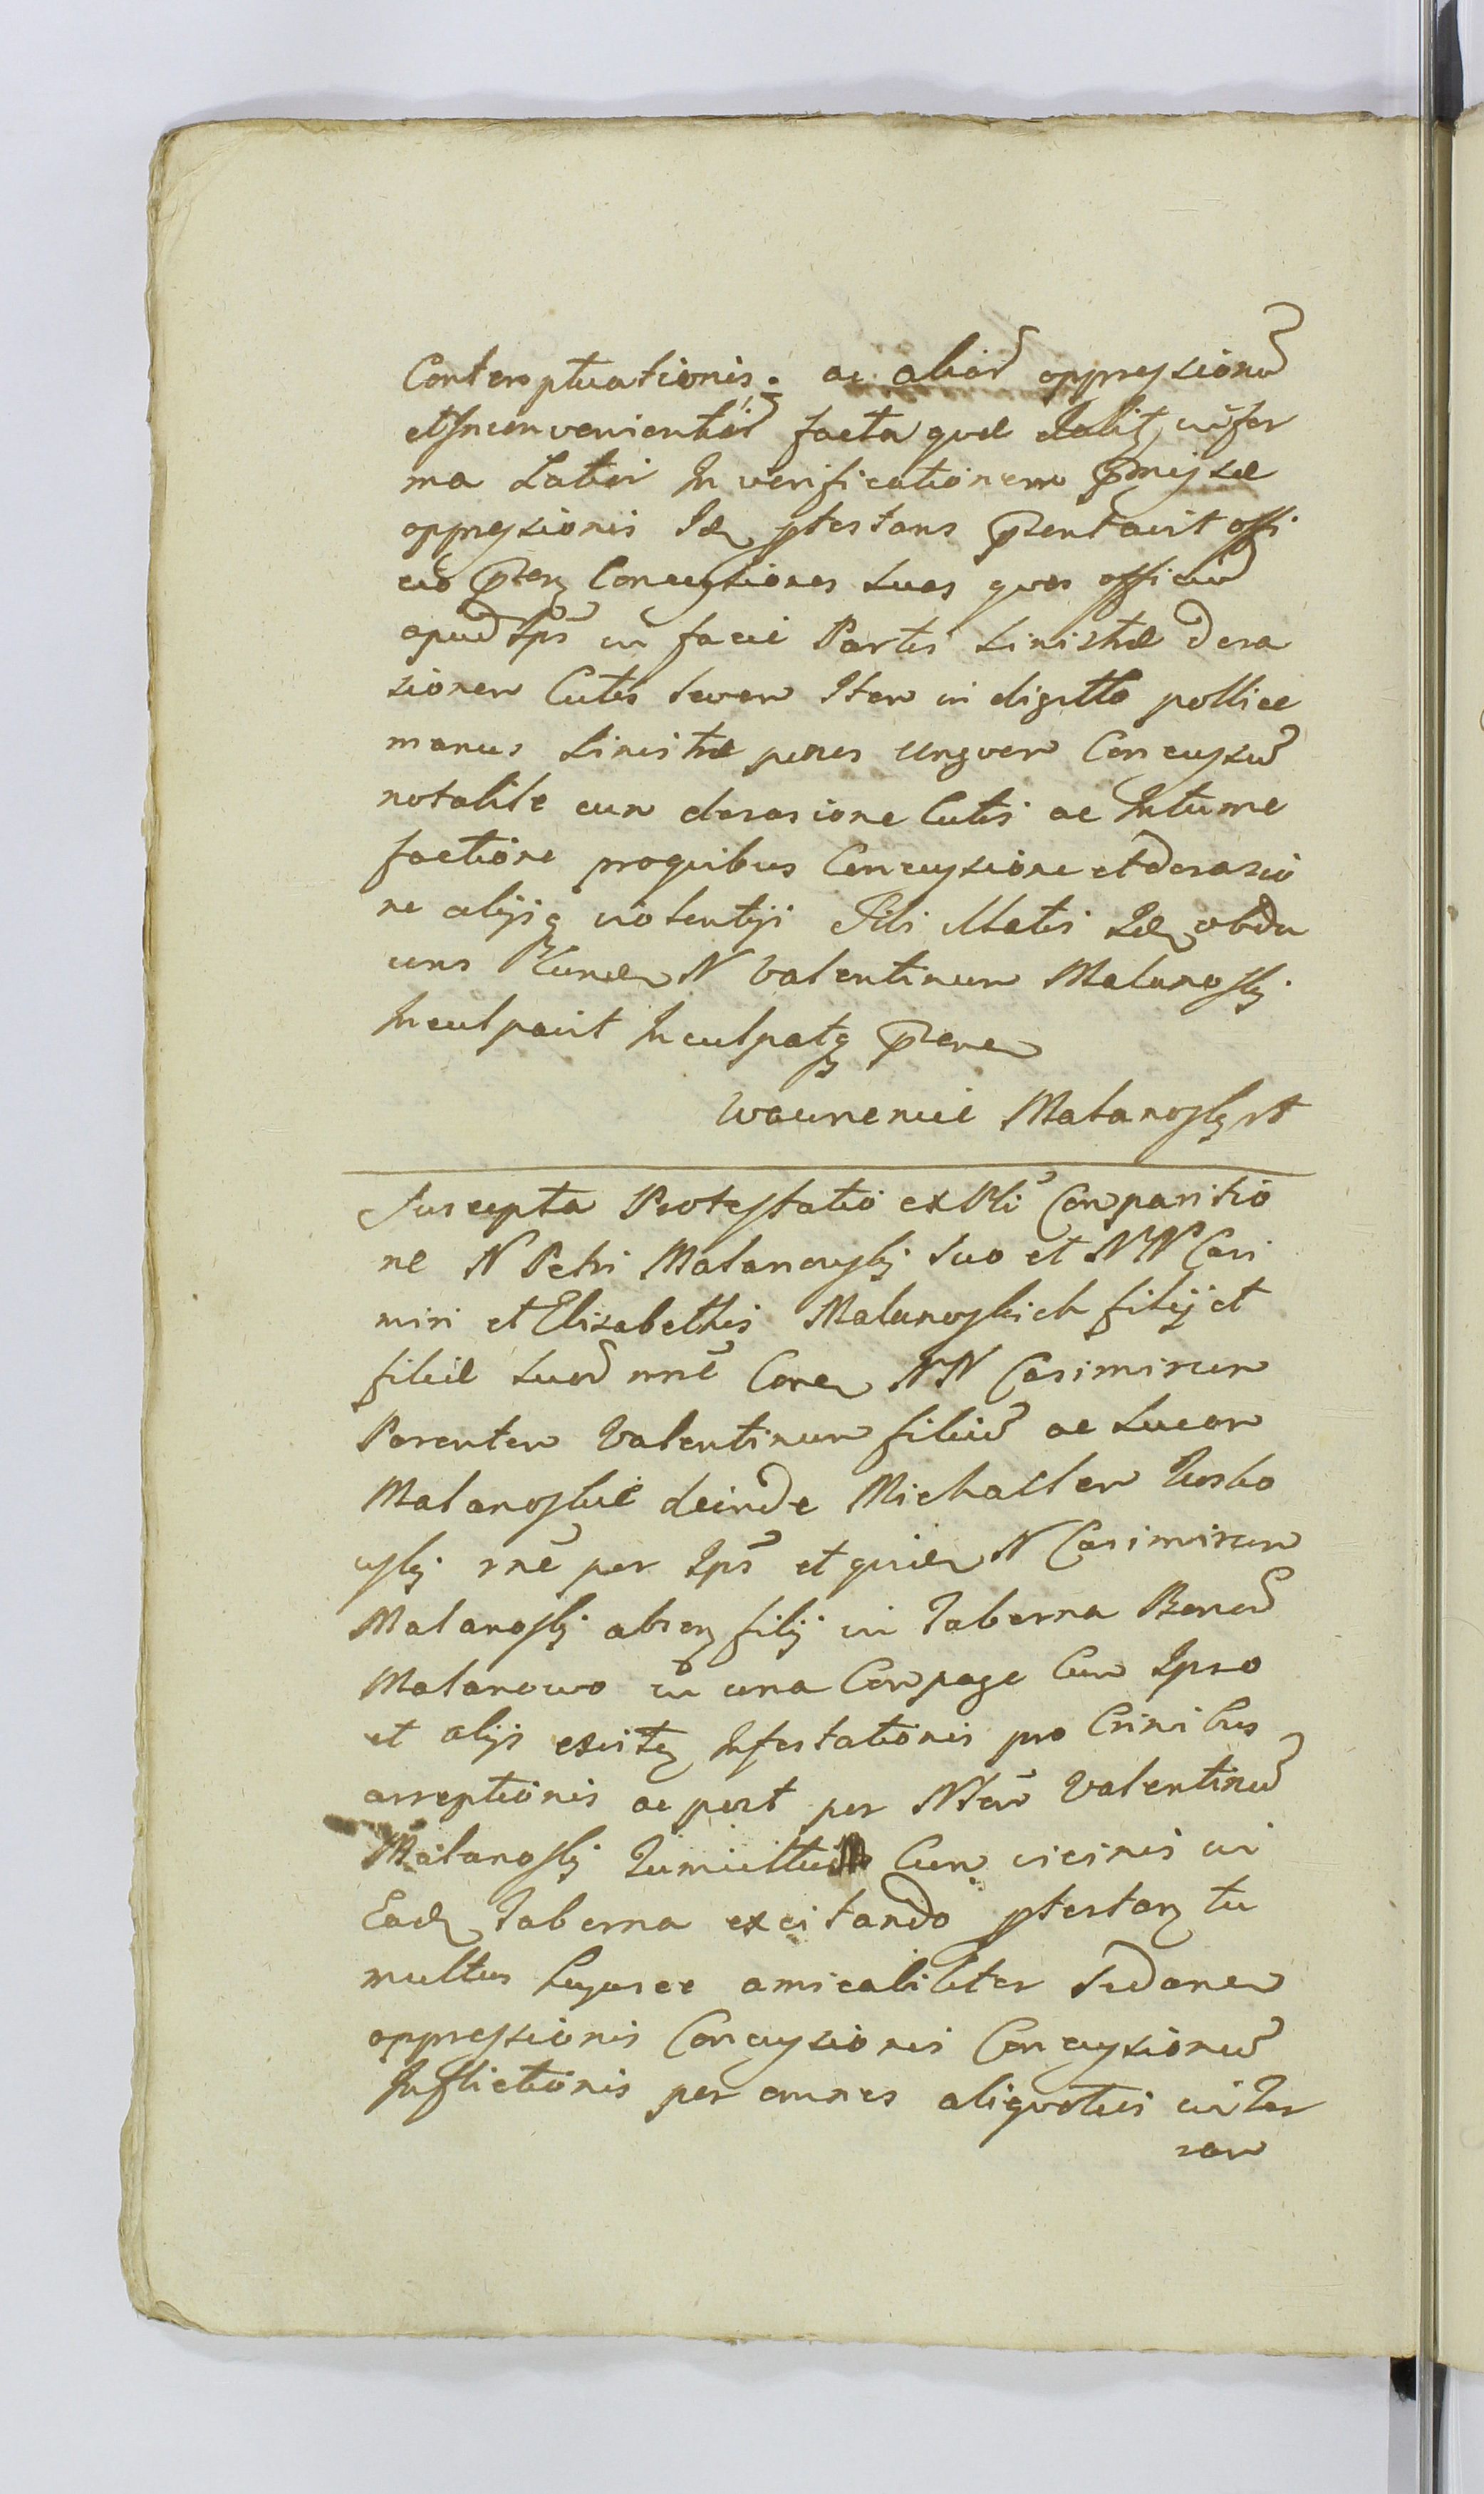 Contemptuationis; ac aliar oppressionũ
et Inconvenientiar facta quæ dabitʒ in for
ma Latiori In verificationem p̃missæ
oppressionis Idʒ ptestans p̃sentavit offi
cio p̃tenʒ Concussiones suas quas officiũ
apud Ips̃ in facie Partis sinistræ dera
sionem Cutis seu Item in digitto pollice
manus sinistræ penes unguem Concussũ
notabile cum derasione Cutis ac Intume
factione pro quibus Concussione et derasio
ne alijsq violentijs Sibi illatis Idʒ obdu
cens Eundʒ N Valentinum Malanoskj
Inculpavit Inculpatq p̃sentʒ
Wawrzeniec Malanoskj
Suscepta Protestatio ex Comparitio
ne N Petri Malanouskj suo et NN Casi
miri et Elisabethis Malanoskich filij et
filiæ suor nnẽ Contʒ NN Casimirum
Parentem Valentinum filiũ ac Lucam
Malanoskie deinde Michaelem Rosko
wskj rnẽ per Ips̃ et quidʒ N Casimirum
Malanoskj absenʒ filij in Taberna Bonor
Malanowo in una Compage Cum Ipso
et alijs existenʒ Infestationis pro Crinibus
arreptionis ac post per N Valentinũ
Malanoskj Tumultum Cum vicinis in
Eadʒ Taberna excitando ptestanʒ tu
multus hujusce amicabiliter sedanʒ
oppressionis Concussionis Concussionũ
Inflictionis per omnes aliquoties in ter
ram